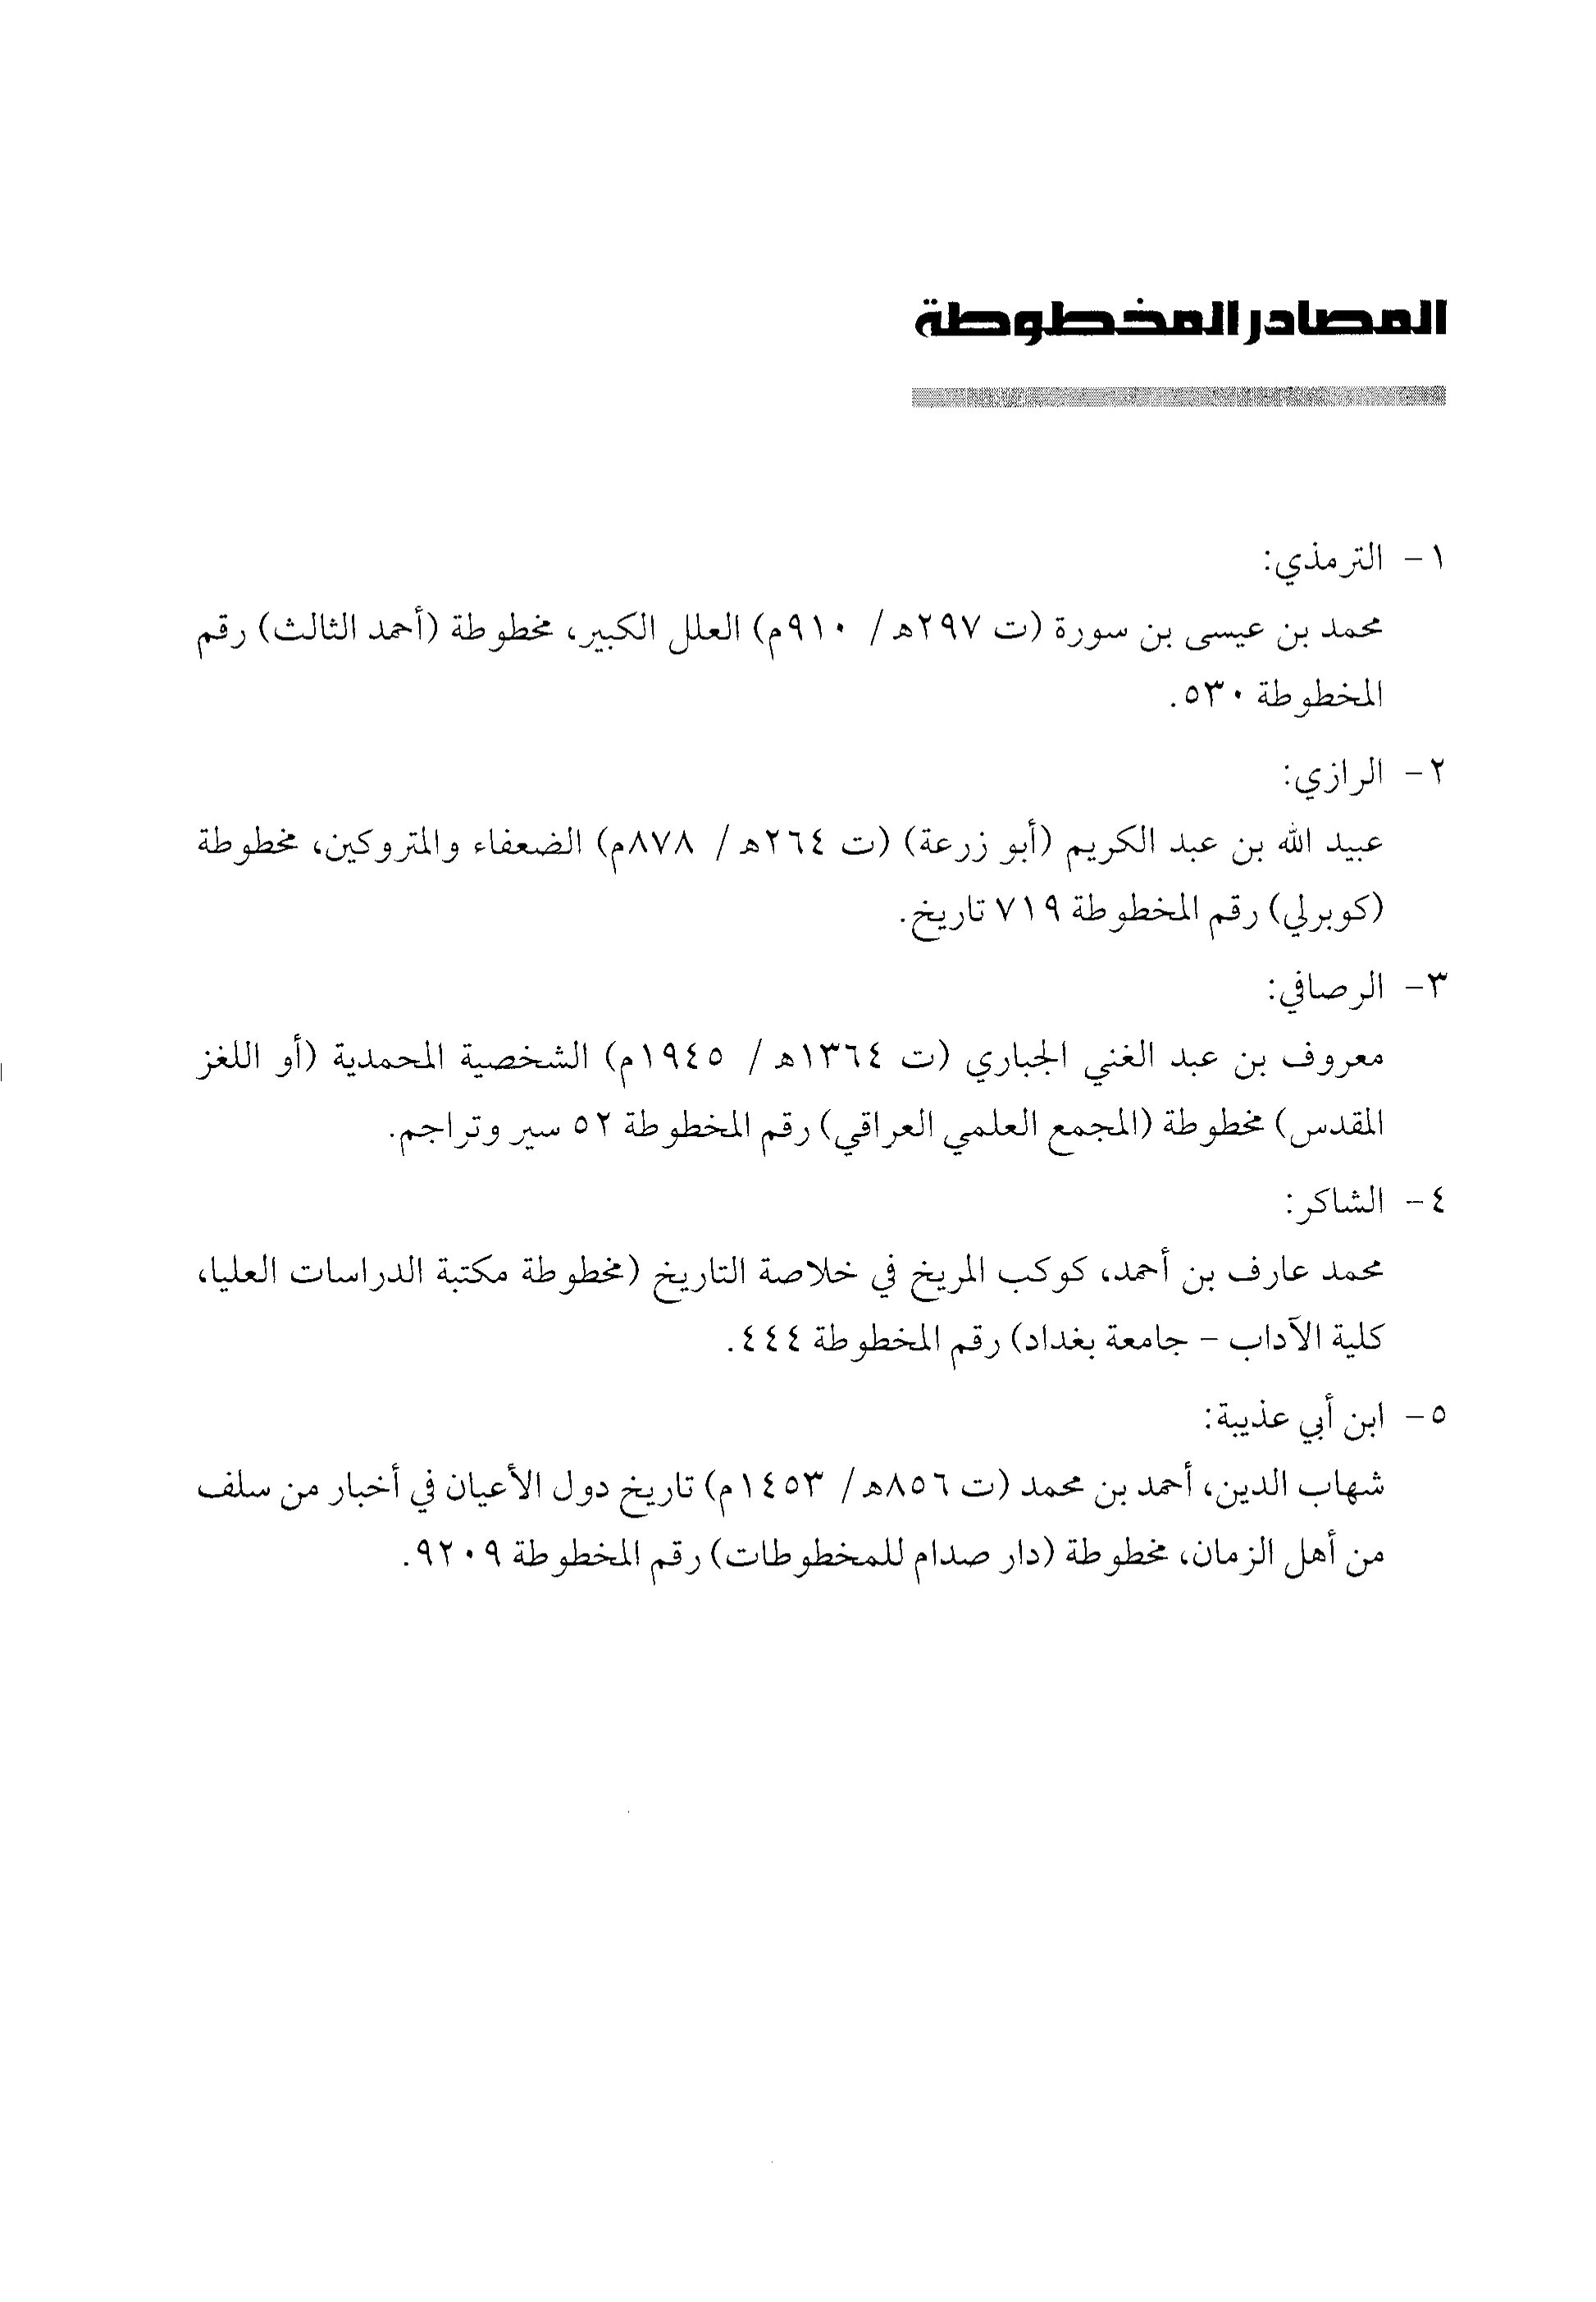 المصادر المخطوطة
١- الترمذي:
محمد بن عيسى بن سورة (ت ٢٩٧هـ/ ٩١٠م) العلل الكبير، مخطوطة (أحمد الثالث) رقم
المخطوطة ٥٣٠.
٢- الرازي:
عبيد الله بن عبد الكريم (أبو زرعة) (ت ٢٦٤هـ/ ٨٧٨م) الضعفاء والمتروكين، مخطوطة
(كوبرلي) رقم المخطوطة ٧١٩ تاريخ.
٣- الرصافي:
معروف بن عبد الغني الجباري (ت ١٣٦٤هـ/ ١٩٤٥م) الشخصية المحمدية (أو اللغز
المقدس) مخطوطة (المجمع العلمي العراقي) رقم المخطوطة ٥٢ سير وتراجم.
٤- الشاكر:
محمد عارف بن أحمد، كوكب المريخ في خلاصة التاريخ (مخطوطة مكتبة الدراسات العليا،
كلية الآداب - جامعة بغداد) رقم المخطوطة ٤٤٤.
٥- ابن أبي عذيبة:
شهاب الدين، أحمد بن محمد (ت ٨٥٦هـ/ ١٤٥٣م) تاريخ دول الأعيان في أخبار من سلف
من أهل الزمان، مخطوطة (دار صدام للمخطوطات) رقم المخطوطة ٩٢٠٩.